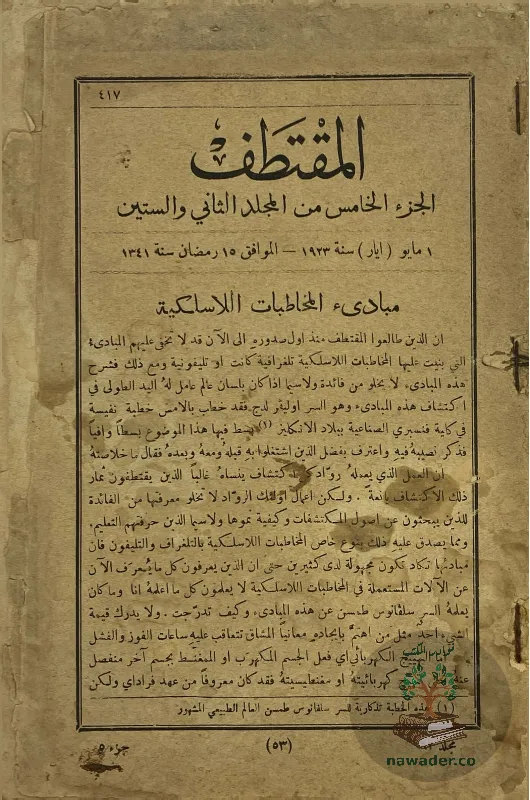 ٤١٧
المقتطف
الجزء الخامس من المجلد الثاني والستين
١ مايو (ايار) سنة ١٩٢٣ — الموافق ١٥ رمضان سنة ١٣٤١
مبادىء المخاطبات اللاسلكية
ان الذين طالعوا المقتطف منذ اول صدوره الى الآن قد لا تخفى عليهم المبادىء
التي بنيت عليها المخاطبات اللاسلكية تلغرافية كانت او تليفونية ومع ذلك فشرح
هذه المبادىء لا يخلو من فائدة ولاسيما اذا كان بلسان عالم عامل لهُ اليد الطولى في
اكتشاف هذه المبادىء وهو السر اوليڤر لدج فقد خطب بالامس خطبة نفيسة
في كلية فنسبري الصناعية ببلاد الانكليز (١) بسط فيها هذا الموضوع بسطاً وافياً
فذكر نصيبهُ فيه واعترف بفضل الذين اشتغلوا به قبلهُ ومعهُ وبعدهُ فقال ما خلاصتهُ
ان العمل الذي يعملهُ روّاد الاكتشاف ينساهُ غالباً الذين يقتطفون ثمار
ذلك الاكتشاف يانعة . ولكن اعمال اولئك الروّاد لا تخلو معرفتها من الفائدة
للذين يبحثون عن اصول المكتشفات وكيفية نموها ولاسيما الذين حرفتهم التعليم .
ومما يصدق عليه ذلك بنوع خاص المخاطبات اللاسلكية بالتلغراف والتليفون فان
مبادئها تكاد تكون مجهولة لدى كثيرين حتى ان الذين يعرفون كل ما يُعرف الآن
عن الآلات المستعملة في المخاطبات اللاسلكية لا يعلمون كل ما اعلمهُ انا وما كان
يعلمهُ السر سلڤانوس طمسن عن هذه المبادىء وكيف تدرّجت . ولا يدرك قيمة
الشيء احدٌ مثل من اهتمَّ بايجاده معانياً المشاق تتعاقب عليه ساعات الفوز والفشل
اما التهييج الكهربائي اي فعل الجسم المكهرب او الممغنط بجسم آخر منفصل
كهربائيتهُ او مغنطيسيتهُ فقد كان معروفاً من عهد فراداي ولكن
(١) هذه الخطبة تذكارية للسر سلڤانوس طمسن العالم الطبيعي المشهور
جزء ٥
(٥٣)
مجلد
نوادر الكتب
nawader.co